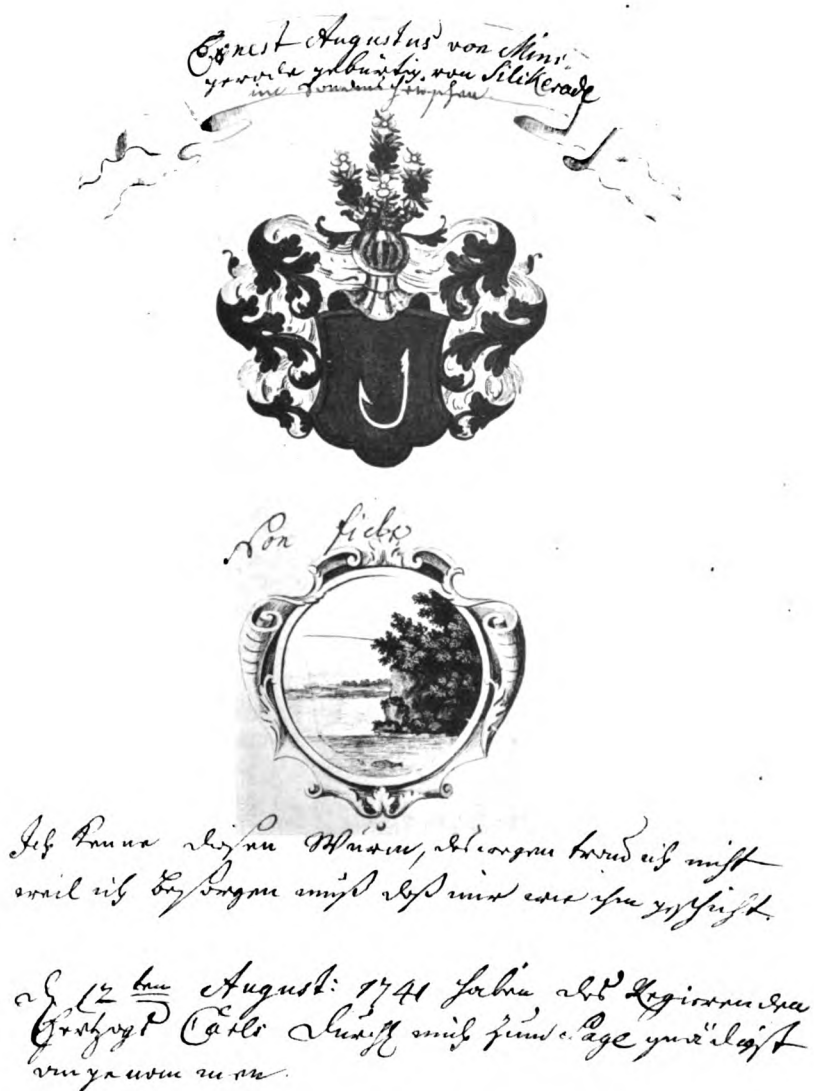 Ernest Augustus von Mini-
gerode gebürtig von Silikerode
im
Von Fiebe
Ich kenne diesen Wurm, deswegen trau ich nicht
weil ich besorgen muß daß mir wie ihm geschicht.
d 12 ten August: 1741 haben des Regierenden
Hertzogs Carls Durchl mich zum Page gnädigst
angenommen.